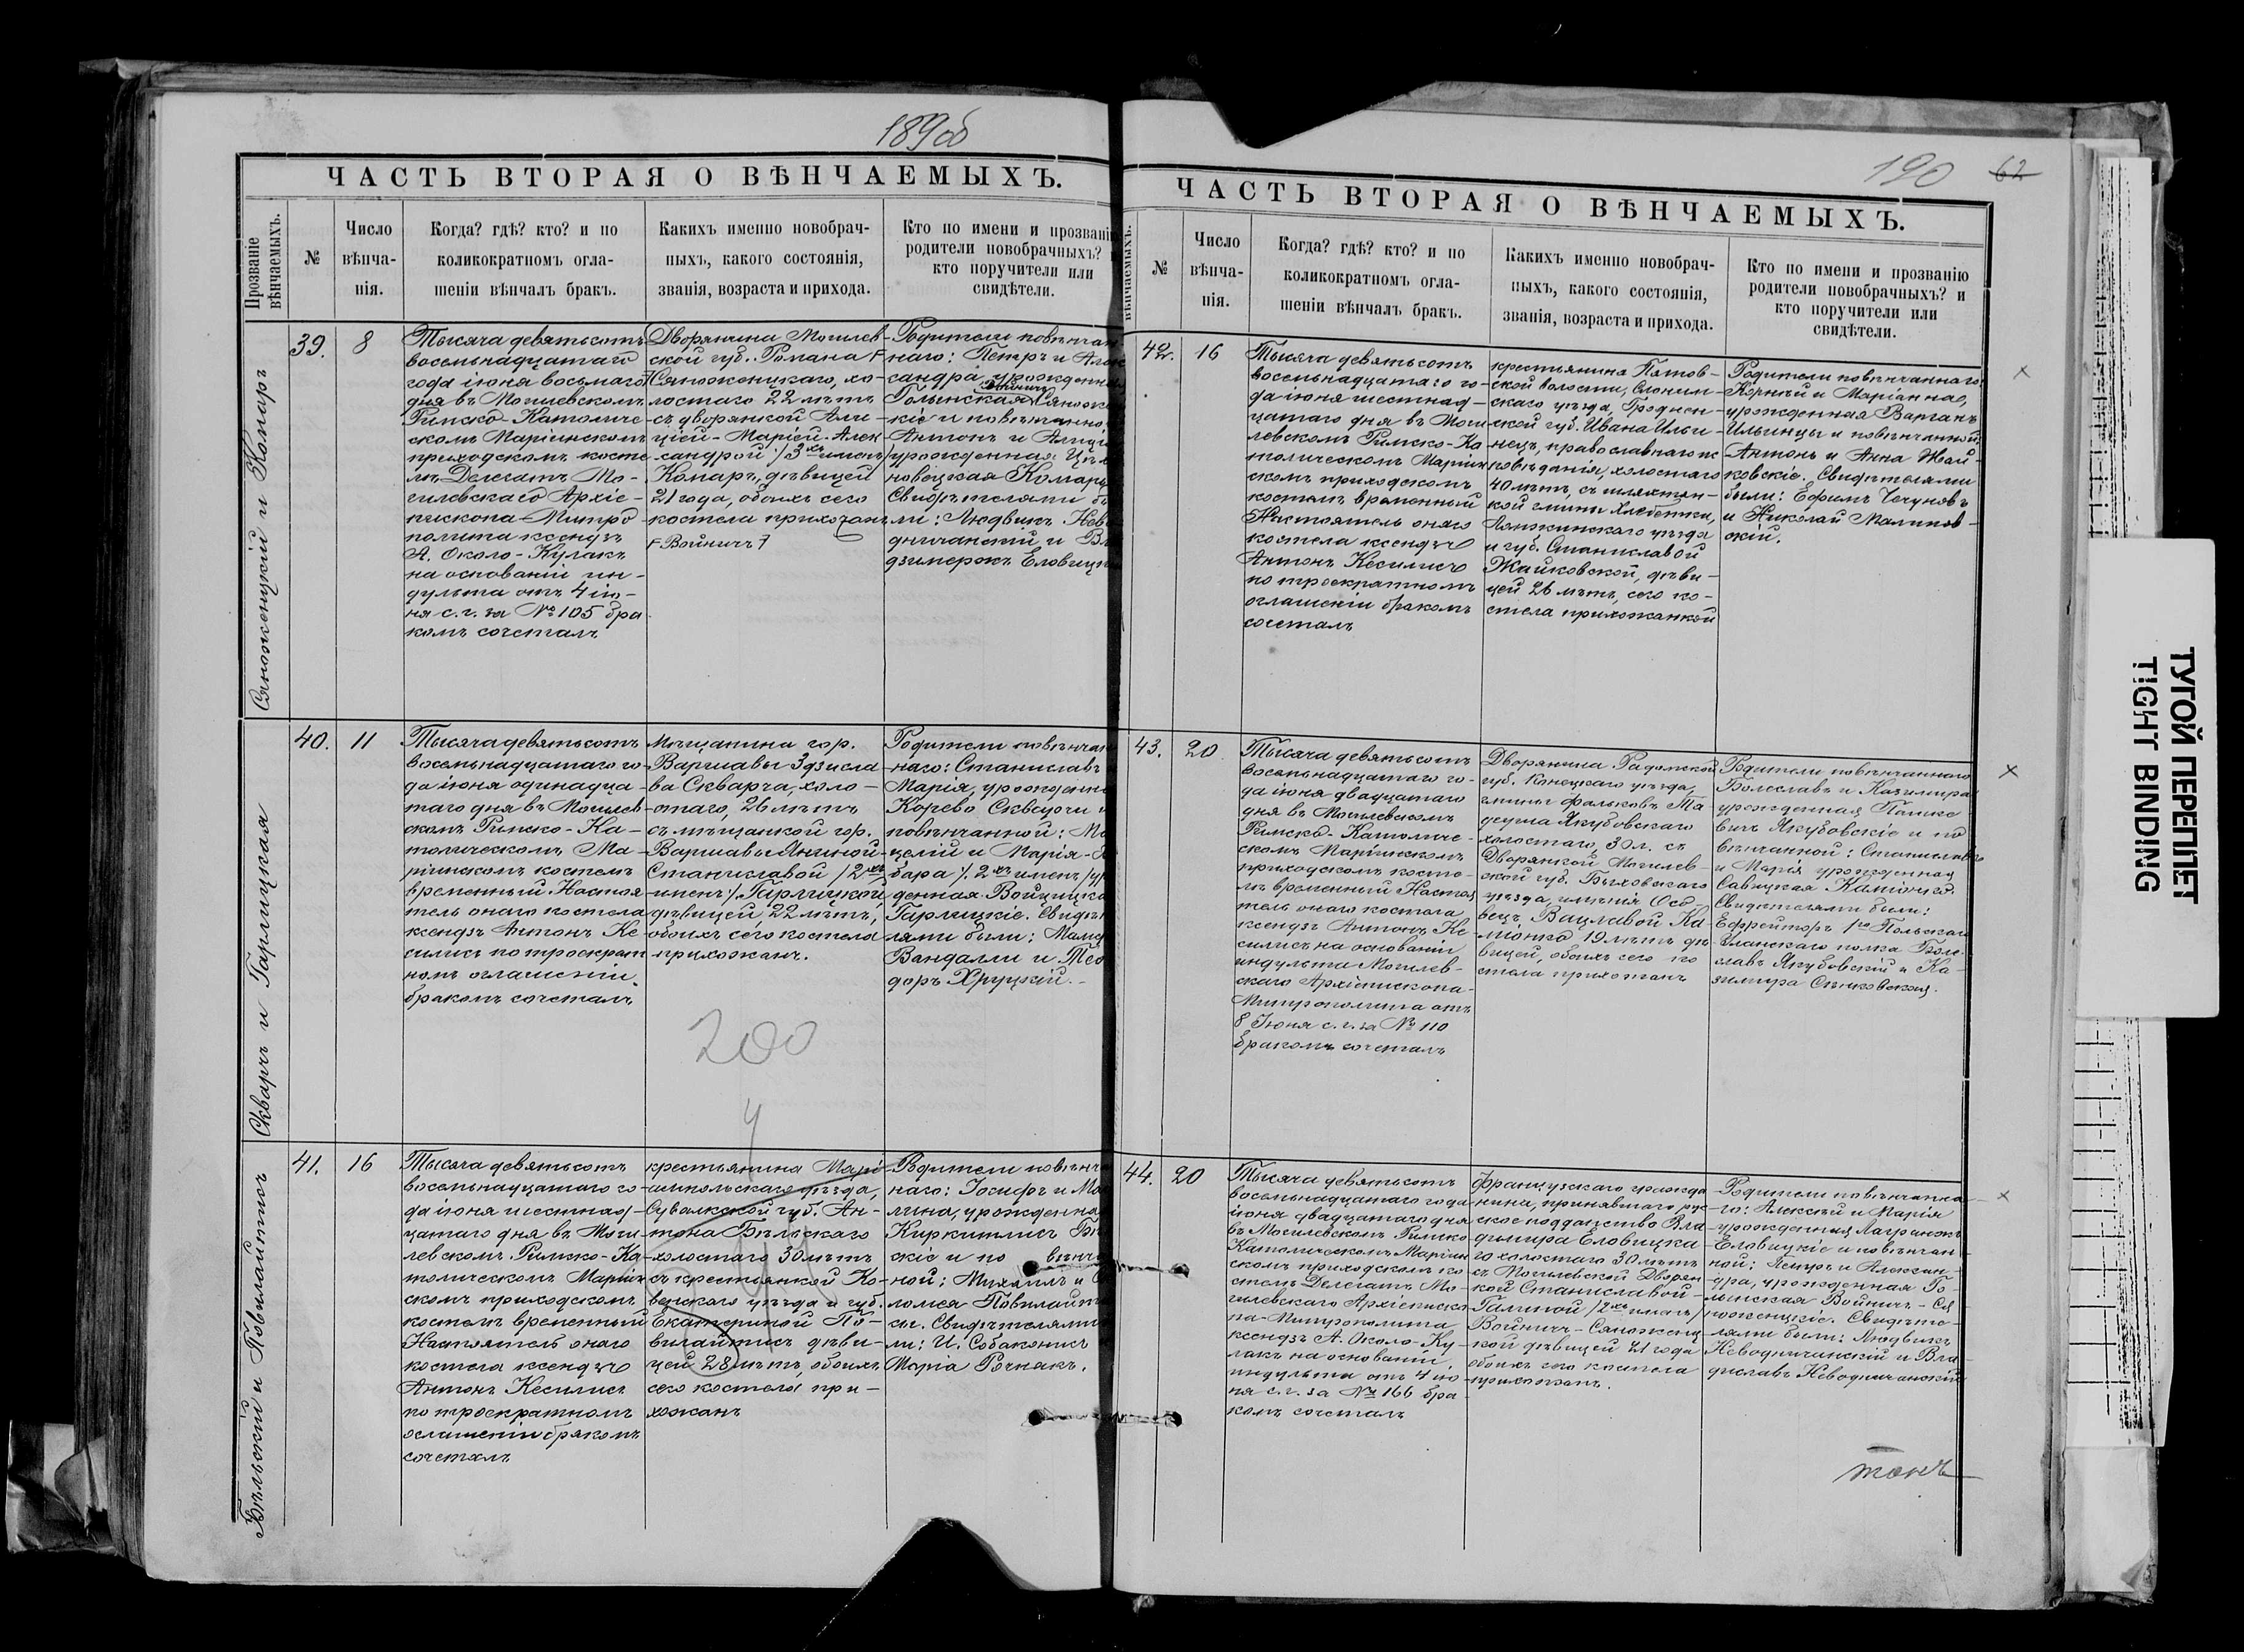 189об
ЧАСТЬ ВТОРАЯ О ВѢНЧАЕМЫХЪ.
Прозваніе
вѣнчаемыхъ.
№
Число
вѣнча-
нія.
Когда? гдѣ? кто? и по
коликократномъ огла-
шеніи вѣнчалъ бракъ.
Какихъ именно новобрач-
ныхъ, какого состоянія,
званія, возраста и прихода.
Кто по имени и прозванію
родители новобрачныхъ?
кто поручители или
свидѣтели.
Сяножонцкій и Комаръ
39.
8
Тысяча девятьсотъ
восемьнадцатаго
года іюня восьмаго
дня въ Могилевскомъ
Римско-Католиче-
скомъ Маріинскомъ
приходскомъ косте-
лѣ Делегатъ Мо-
гилевскаго Архіе-
пископа-Митро-
полита ксендзъ
А. Около-Кулакъ
на основаніи ин-
дульта отъ 4 ію-
ня с.г. за № 105 бра-
комъ сочеталъ
Дворянина Могилев-
ской губ. Романа
Сяножонцкаго, хо-
лостаго 22 лѣтъ
съ дворянкой Али-
ціей-Маріей-Алек-
сандрой /3хъ именъ/
Комаръ, дѣвицей
21 года, обоихъ сего
костела прихожанъ
Войничъ
Родители повѣнчан-
наго: Петръ и Алек
сандра урожденная
Войничъ
Голынская Сянож
кіе и повѣнчанно
Антонъ и Алиція
урожденная Цѣх
новецкая Комары
Свидѣтелями бы
ли: Людвикъ Нев
дничанскій и Вл
дзимержъ Еловицк
Скварчъ и Гарлицкая
40.
11
Тысяча девятьсотъ
восемьнадцатаго го-
да іюня одинадца-
таго дня въ Могилев-
скомъ Римско-Ка-
толическомъ Ма-
ріинскомъ костелѣ
временный Настоя
тель онаго костела
ксендзъ Антонъ Ке-
силисъ по троекрат
номъ оглашеніи
бракомъ сочеталъ
Мѣщанина гор.
Варшавы Здзисла-
ва Скварча, холо-
стаго, 26 лѣтъ
съ мѣщанкой гор.
Варшавы Яниной-
Станиславой /2хъ
именъ/ Гарлицкой
дѣвицей, 22 лѣтъ,
обоихъ сего костела
прихожанъ.
Родители повѣнчан
наго: Станиславъ
Марія, урожденна
Корево Скварчи и
повѣнчанной: Ма
целій и Марія-
бара /2хъ именъ/ ур
денная Войцицка
Гарлицкіе. Свидѣт
лями были:
Вандалли и Тео
доръ Хруцкій.
200
4
Бѣльскій и Повилайтисъ
41.
16
Тысяча девятьсотъ
восемьнадцатаго го-
да іюня шестнад-
цатаго дня въ Моги
левскомъ Римско-Ка
толическомъ Маріин
скомъ приходскомъ
костелѣ временный
Настоятель онаго
костела ксендзъ
Антонъ Кесилисъ
по троекратномъ
оглашеніи бракомъ
сочеталъ
крестьянина Марі-
ампольскаго уѣзда,
Сувалкской губ. Ан-
тона Бѣльскаго
холостаго 30 лѣтъ
съ крестьянкой Ко-
венскаго уѣзда и губ.
Екатериной По-
вилайтисъ дѣви-
цей 28 лѣтъ, обоихъ
сего костела при-
хожанъ
Родители повѣнч
наго: Іосифъ и Ма
лина, урожденна
Киркитлисъ Бѣ
скіе и по вѣнч
ной: Михаилъ и
ломея Повилайт
сы. Свидѣтелями
ли: И. Собаконисъ
Марія Рочнакъ.
190 62
ЧАСТЬ ВТОРАЯ О ВѢНЧАЕМЫХЪ.
вѣнчаемыхъ.
№
Число
вѣнча-
нія.
Когда? гдѣ? кто? и по
коликократномъ огла-
шеніи вѣнчалъ бракъ.
Какихъ именно новобрач-
ныхъ, какого состоянія,
званія, возраста и прихода.
Кто по имени и прозванію
родители новобрачныхъ? и
кто поручители или
свидѣтели.
42.
16
Тысяча девятьсотъ
восемьнадцатаго го-
да іюня шестнад-
цатаго дня въ Моги
левскомъ Римско-Ка
толическомъ Маріин
скомъ приходскомъ
костелѣ временный
Настоятель онаго
костела ксендзъ
Антонъ Кесилисъ
по троекратномъ
оглашеніи бракомъ
сочеталъ
крестьянина Пятов-
ской волости, Слоним-
скаго уѣзда, Гроднен-
ской губ. Ивана Ильи-
нецъ, православнаго ис
повѣданія, холостаго
40 лѣтъ, съ шляхтян-
кой гмины Хлебетки,
Ломжинскаго уѣзда
и губ. Станиславой
Жайковской, дѣви-
цей 26 лѣтъ, сего ко-
стела прихожанкой
Родители повѣнчаннаго
Корнѣй и Маріанна,
урожденная Варганъ
Ильинцы и повѣнчанной
Антонъ и Анна Жай-
ковскіе. Свидѣтелями
были: Ефимъ Чечуновъ
и Николай Малинов-
скій.
43.
20
Тысяча девятьсотъ
восемьнадцатаго го-
да іюня двадцатаго
дня въ Могилевскомъ
Римско-Католиче-
скомъ Маріинскомъ
приходскомъ косте-
лѣ временный Настоя
тель онаго костела,
ксендзъ Антонъ Ке
силисъ на основаніи
индульта Могилев-
скаго Архіепископа-
Митрополита отъ
8 Іюня с.г. за № 110
бракомъ сочеталъ
Дворянина Радомской
губ. Конецкаго уѣзда,
гмины Фальковъ Та-
деуша Якубовскаго
холостаго, 30 л. съ
Дворянкой Могилев-
ской губ. Быховскаго
уѣзда, имѣнія Осо-
вецъ, Вацлавой Ка
міонко 19 лѣтъ дѣ
вицей, обоихъ сего ко
стела прихожанъ
Родители повѣнчаннаго
Болеславъ и Казимира
урожденная Пашке
вичъ Якубовскіе и по
вѣнчанной: Станиславъ
и Марія урожденная
Савицкая Каміонко
Свидѣтелями были:
Ефрейторъ 1го Польскаго
Уланскаго полка Боле-
славъ Якубовскій и Ка-
зимира Сѣнковская.
44.
20
Тысяча девятьсотъ
восемьнадцатаго года
іюня двадцатаго дня
въ Могилевскомъ Римско
Католическомъ Маріин
скомъ приходскомъ ко
стелѣ Делегатъ Мо-
гилевскаго Архіеписко
па-Митрополита
ксендзъ А. Около-Ку
лакъ на основаніи
индульта отъ 4 ію
ня с.г. за № 166 бра
комъ сочеталъ
Французскаго гражда
нина, принявшаго рус
ское подданство Вла
димира Еловицка
го холостаго 30 лѣтъ
съ Могилевской Дворян
кой Станиславой-
Галиной /2хъ именъ/
Войничъ-Сяножонц
кой дѣвицей 21 года
обоихъ сего костела
прихожанъ.
Родители повѣнчанна
го: Алексѣй и Марія
урожденная Лагранжъ
Еловицкіе и повѣнчан
ной: Петръ и Алексан-
дра, урожденная Го-
лынская Войничъ-Ся
ножонцкіе. Свидѣте
лями были: Людвикъ
Неводничанскій и Вла
диславъ Неводничанскій
ТУГОЙ ПЕРЕПЛЕТ
TIGHT BINDING